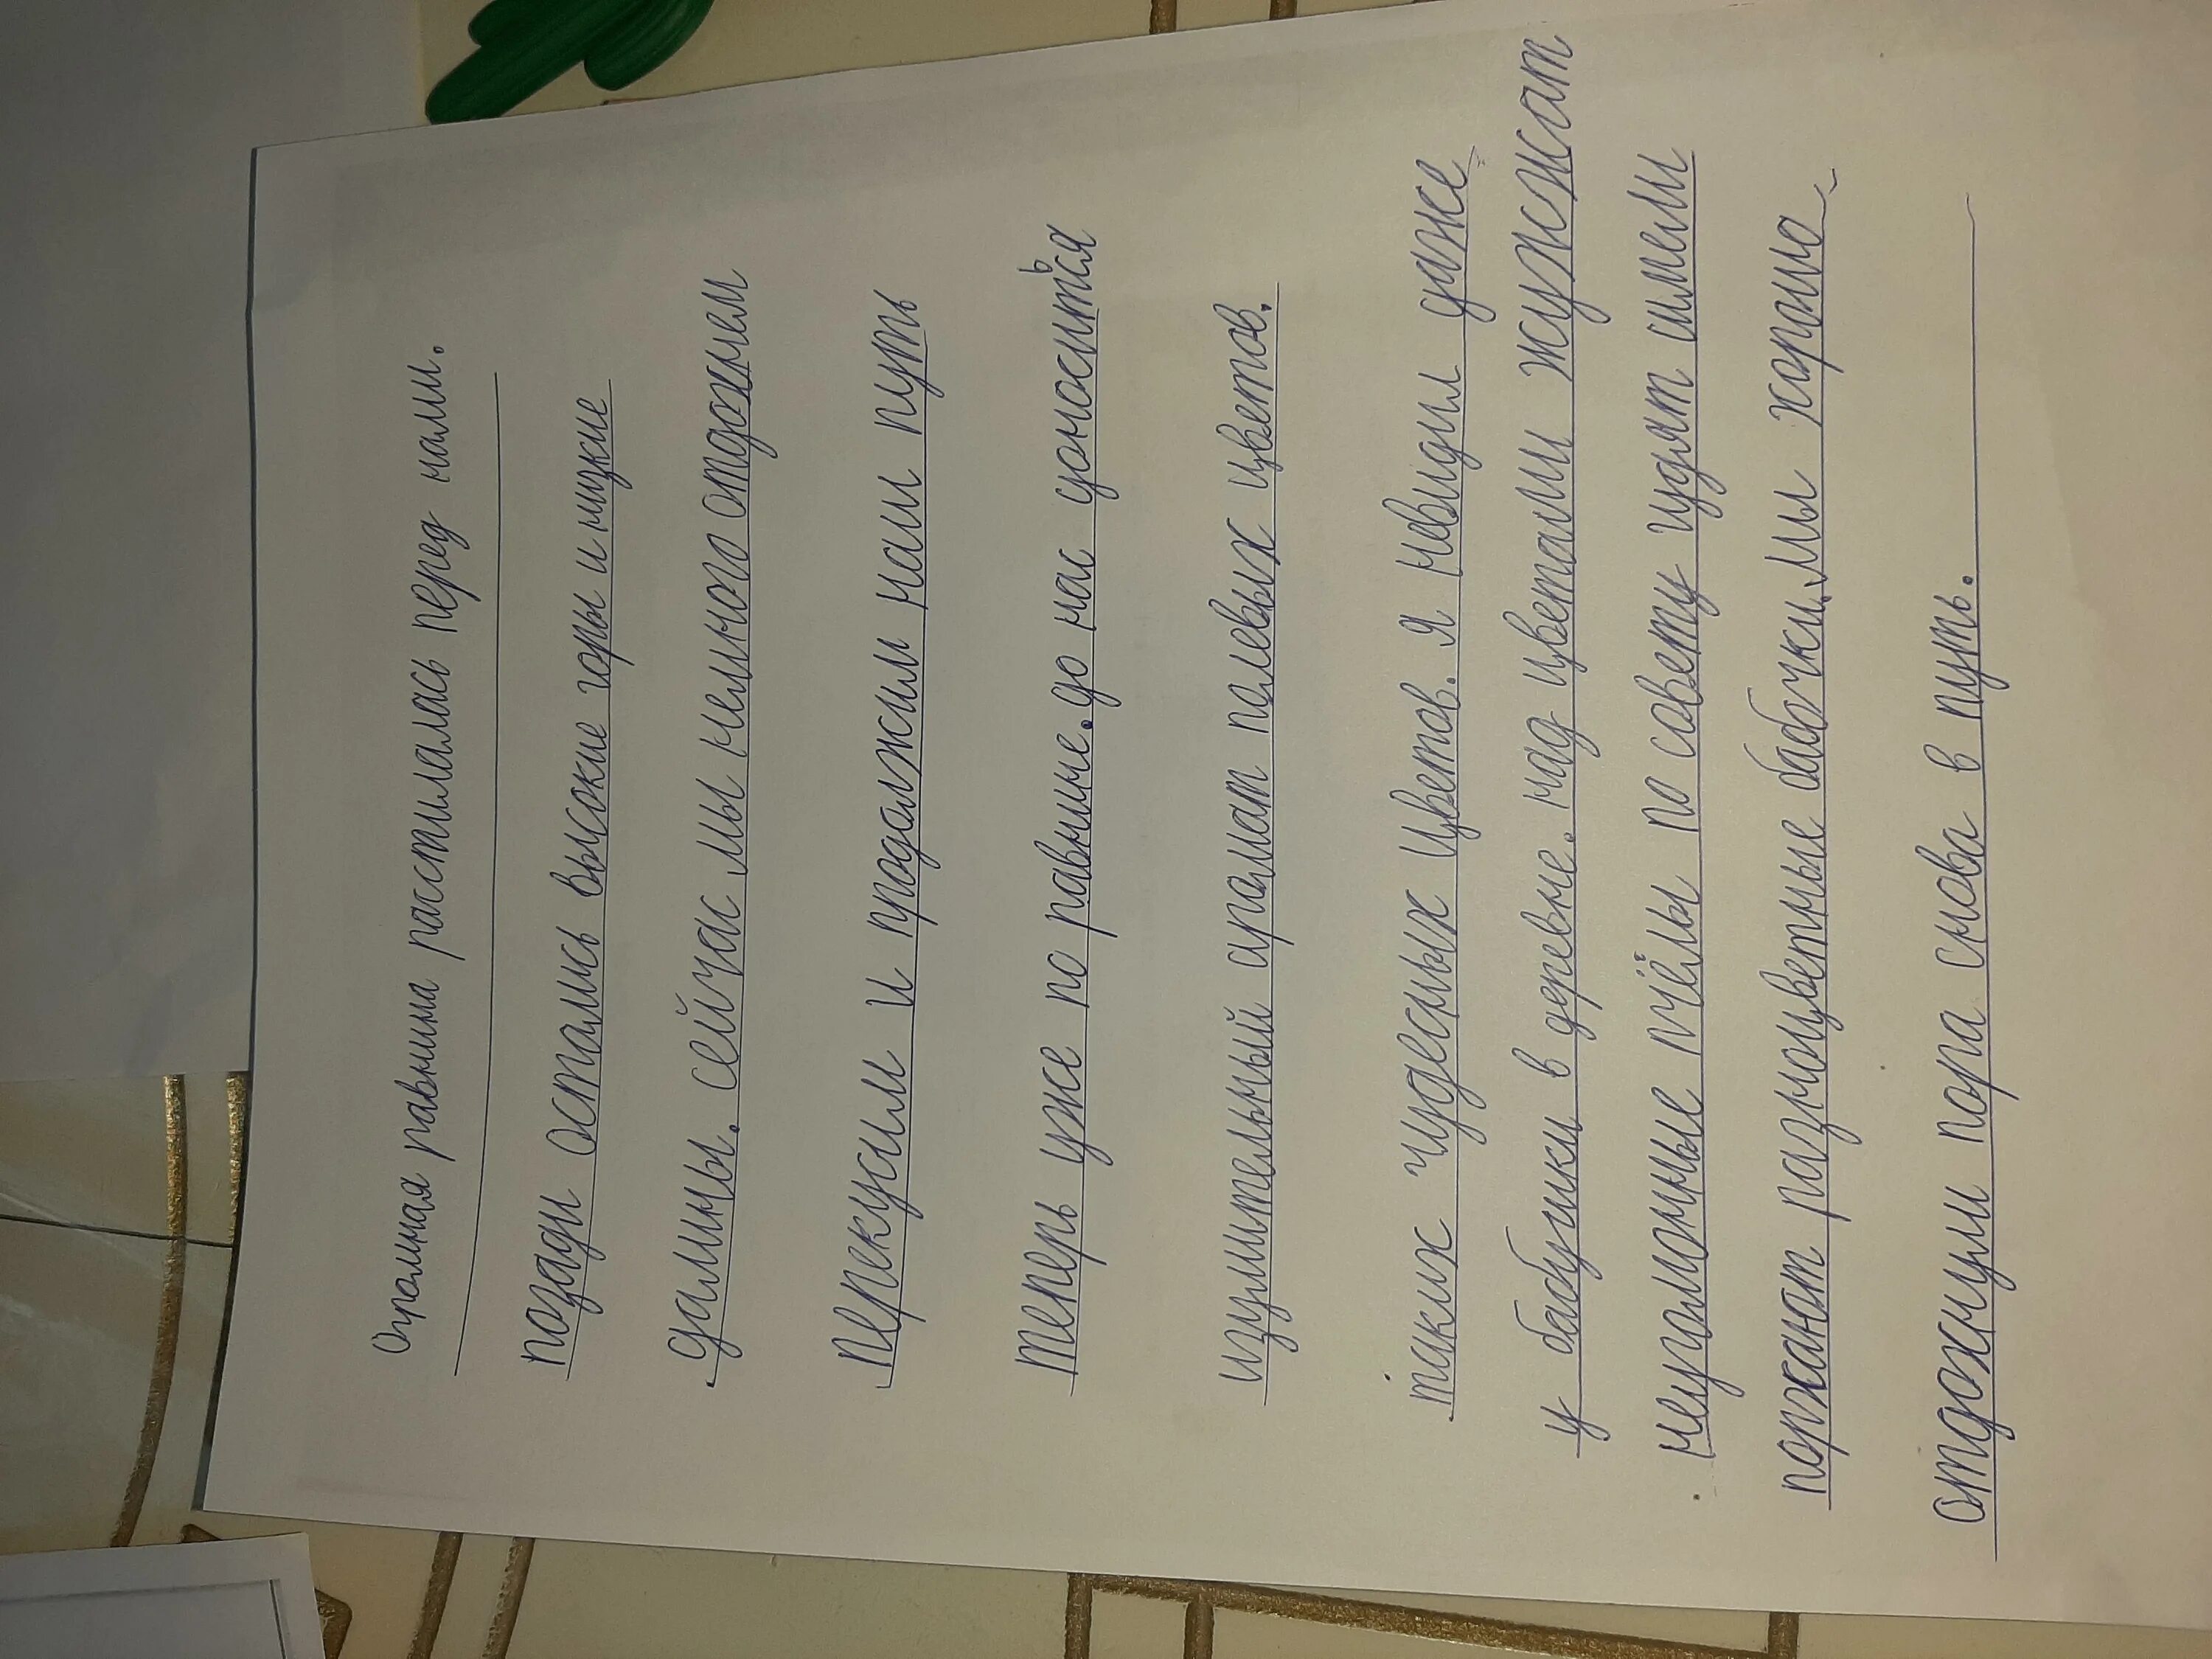 Огромная равнина расстилалась перед нами.
позади остались высокие горы и низкие
далины. сейчас мы немного отдохнем
перекусим и продалжим наш путь
теперь уже по равнине. до нас доноситься
изумительный аромат полевых цветов.
таких чудесных цветов. я невидил даже
у бабушки в деревне. над цветами жужжат
неугомонные пчёлы по цвету
порхают разноцветные бабочки. мы хорошо
отдохнули пора снова в путь.